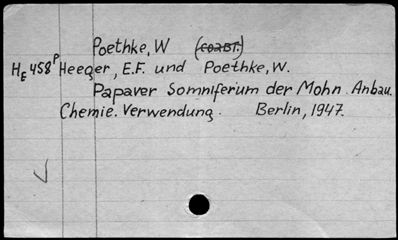 Poethke, W (соавт.)
HE 458P Heeger, E.F. und Poethke, W.
Papaver Somniferum der Mohn. Anbau.
Chemie. Verwendung. Berlin, 1947.